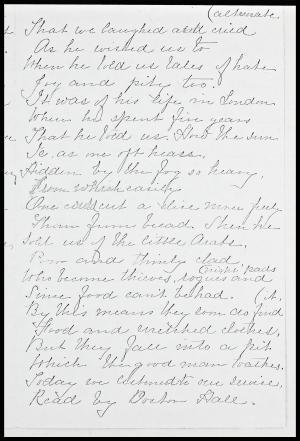 (alternate.
That we laughed and cried
As he wished us to
When he told us tales of hate
Joy and pity too.
It was of his life in London
When he spent five years
That he told us. And the sun
Is, as we oft hears,
Hidden by the fog so heavy,
From which easily
One could cut a slice more
Than from bread. Then he
told us of the little Arabs.
Poor and thinly clad,
Who become thieves, rogues and
Since food can't be had. (it,
By this means they com do find
Food and wretched clothes,
But they fall into a pit
Which the good man loathes.
Today we listened to one service,
Read by Doctor Hale.